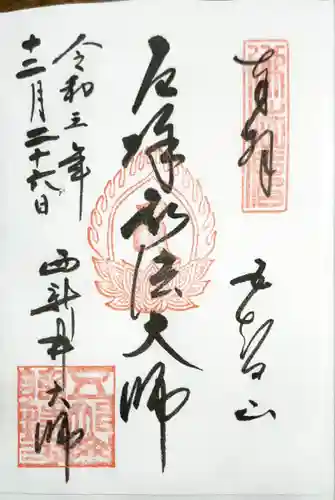 奉拝
五智山
厄除祈法大師
令和五年
十二月二十六日
西新井大師